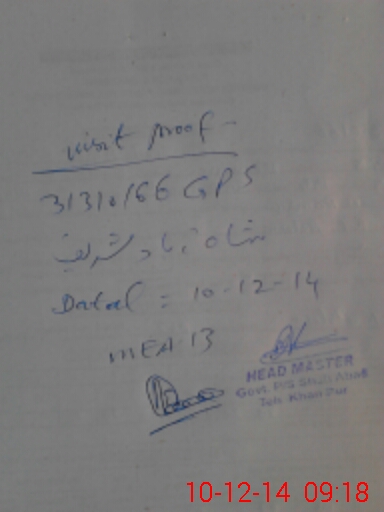 visit proof -
31310166 GPS
شاہ آباد شریف
Dated = 10-12-14
MEA 13
HEAD MASTER
Govt. P/S Shah Abad
Teh. Khan Pur
10-12-14 09:18